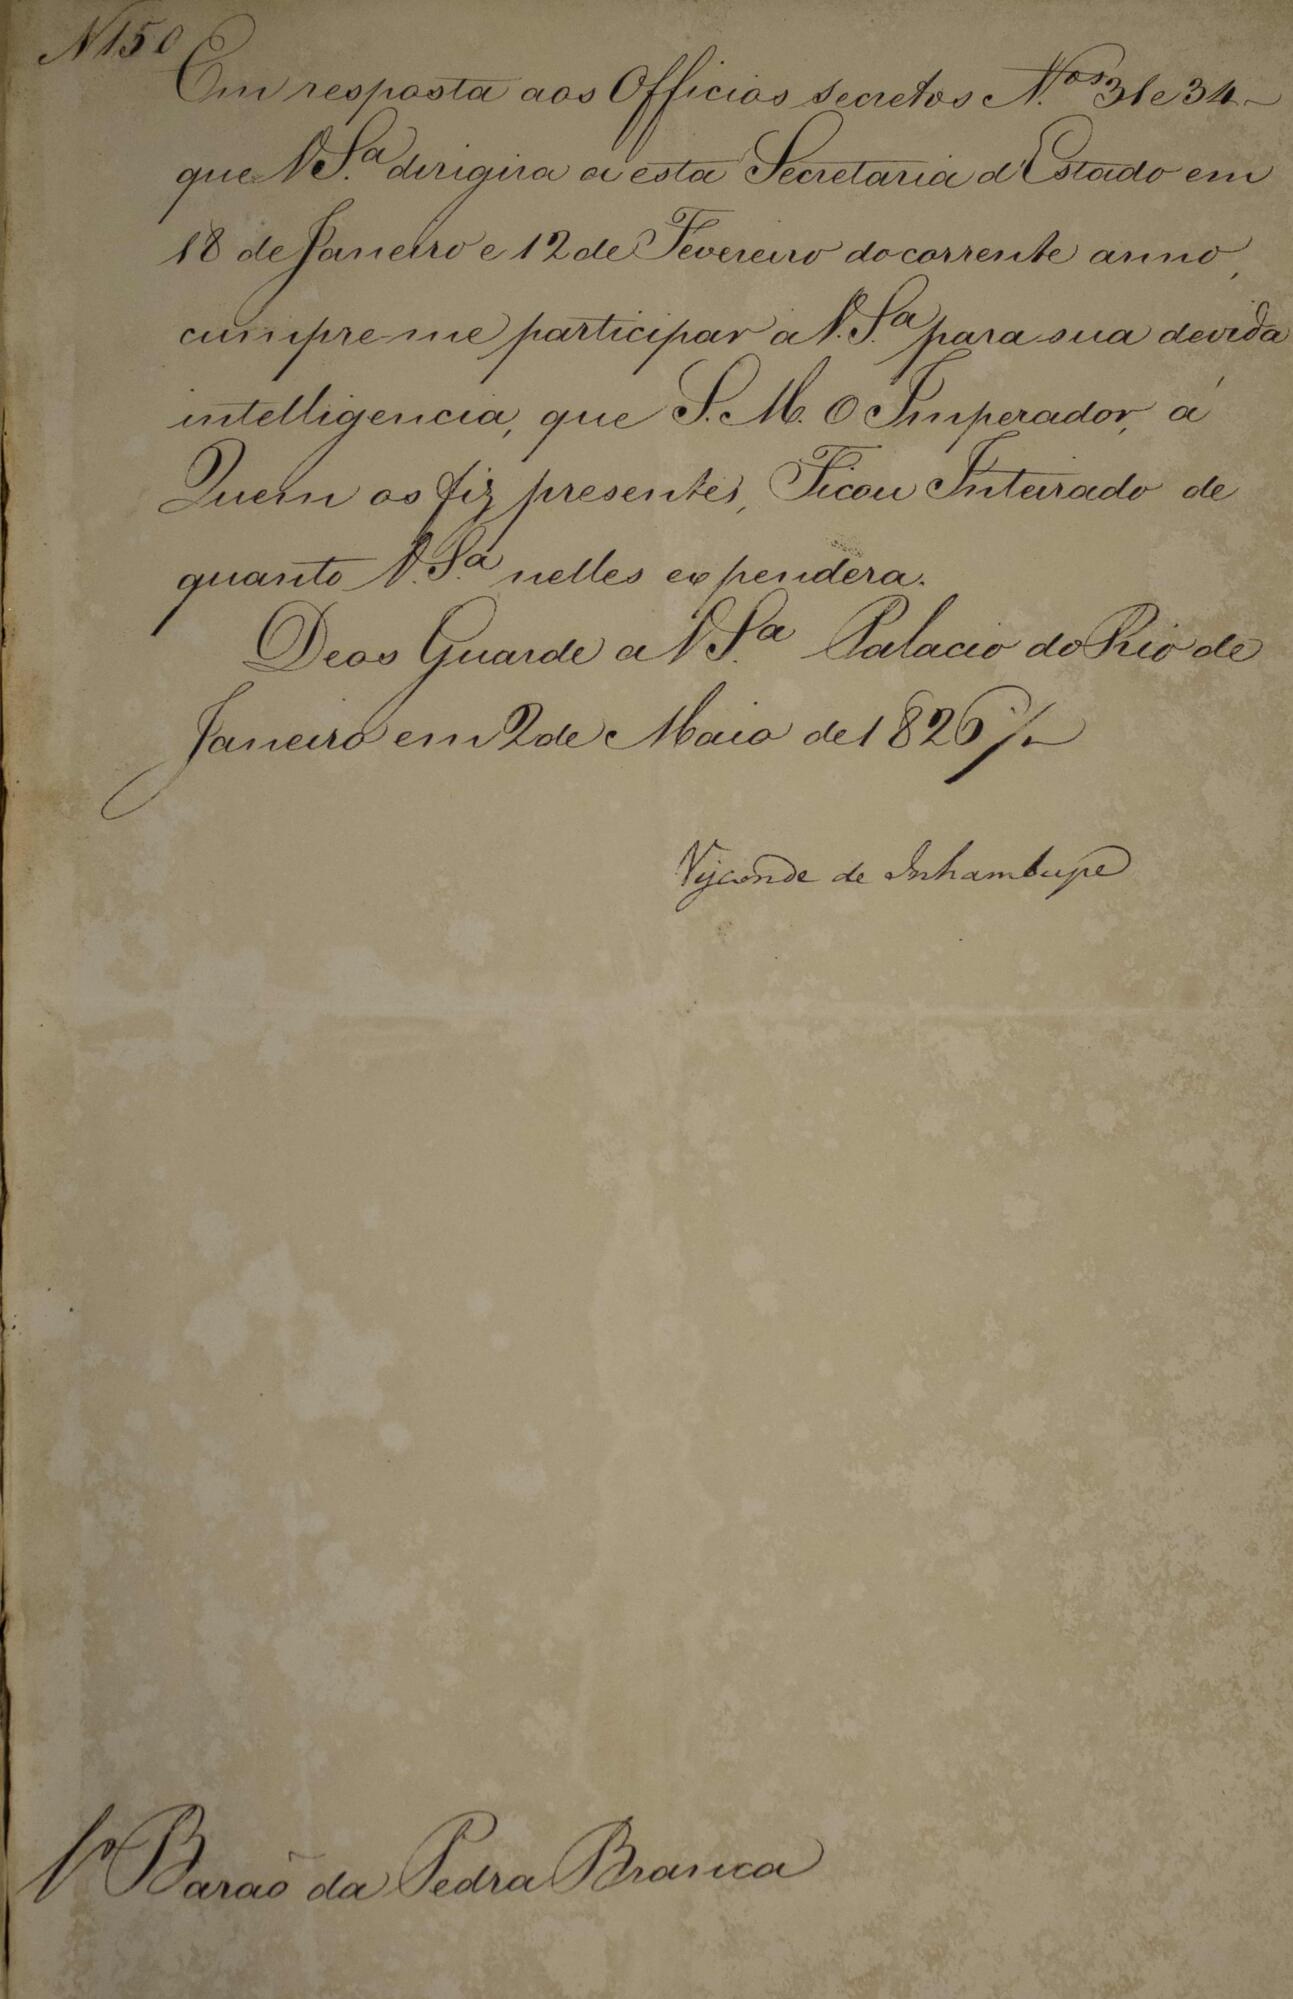 N 150
Em resposta aos Officios secretos N.os 31 e 34
que V Sa. dirigira a esta Secretaria d'Estado em
18 de Janeiro e 12 de Fevereiro do corrente anno,
cumpre-me participar a V. Sa. para sua devida
intelligencia, que S. M. O Imperador, á
Quem os fiz presentes, Ficou Inteirado de
quanto V. Sa. nelles expendêra.
Deos Guarde a V Sa. Palacio do Rio de
Janeiro em 2 de Maio de 1826
Visconde de Inhambupe
Barão da Pedra Branca